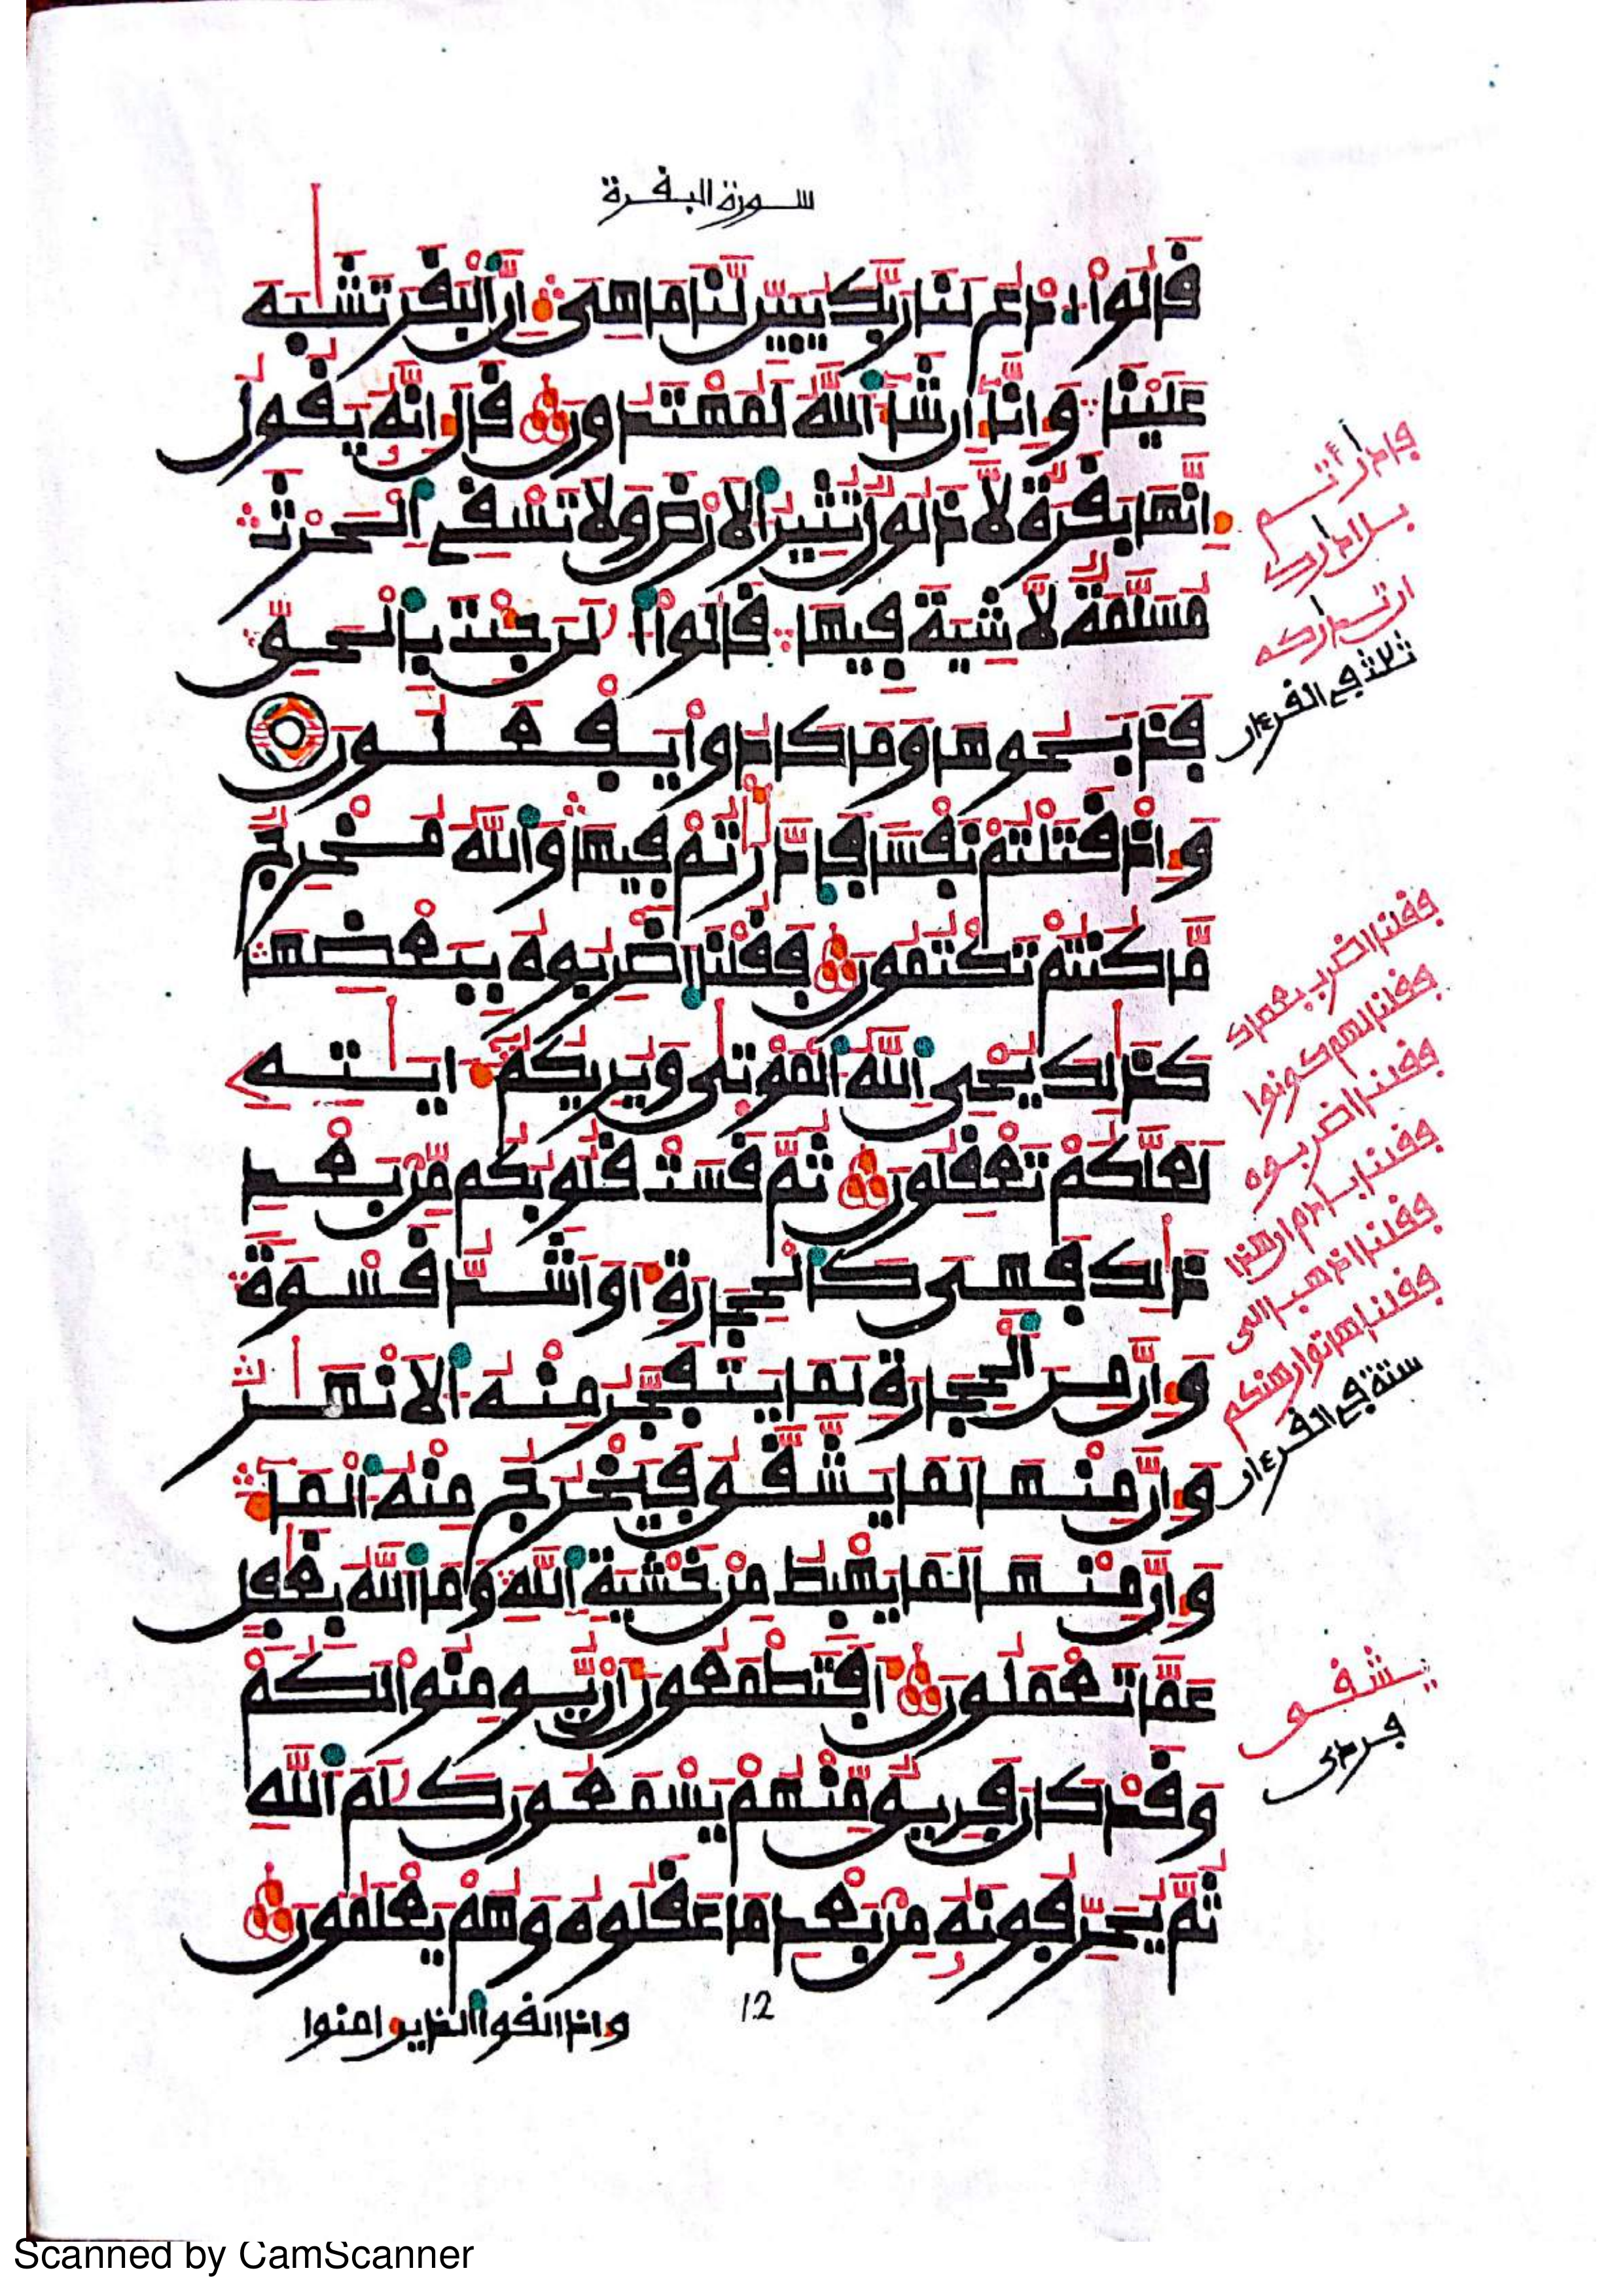 سورة البقرة
قَالُواْ ادْعُ لَنَا رَبَّكَ يُبَيِّن لَّنَا مَا هِيَ إِنَّ اَلْبَقَرَ تَشَٰبَهَ
عَلَيْنَا وَإِنَّا إِن شَآءَ اَللَّهُ لَمُهْتَدُونَ قَالَ إِنَّهُۥ يَقُولُ
إِنَّهَا بَقَرَةٌ لَّا ذَلُولٌ تُثِيرُ اُلْأَرْضَ وَلَا تَسْقِى اِلْحَرْثَ
مُسَلَّمَةٌ لَّا شِيَةَ فِيهَا قَالُواْ اُلَٰنَ جِئْتَ بِالْحَقِّ
فَذَبَحُوهَا وَمَا كَادُواْ يَفْعَلُونَ
وَإِذْ قَتَلْتُمْ نَفْسًا فَادَّٰرَٰٔتُمْ فِيهَا وَاللَّهُ مُخْرِجٌ
مَّا كُنتُمْ تَكْتُمُونَ فَقُلْنَا اَضْرِبُوهُ بِبَعْضِهَا
كَذَٰلِكَ يُحْيِ اِللَّهُ اُلْمَوْتَىٰ وَيُرِيكُمْ ءَايَٰتِهِ
لَعَلَّكُمْ تَعْقِلُونَ ثُمَّ قَسَتْ قُلُوبُكُم مِّن بَعْدِ
ذَٰلِكَ فَهِيَ كَالْحِجَارَةِ أَوَ اَشَدُّ قَسْوَةً
وَإِنَّ مِنَ اَلْحِجَارَةِ لَمَا يَتَفَجَّرُ مِنْهُ اُلْأَنْهَٰرُ
وَإِنَّ مِنْهَا لَمَا يَشَّقَّقُ فَيَخْرُجُ مِنْهُ اُلْمَآءُ
وَإِنَّ مِنْهَا لَمَا يَهْبِطُ مِنْ خَشْيَةِ اِللَّهِ وَمَا اَللَّهُ بِغَٰفِلٍ
عَمَّا تَعْمَلُونَ أَفَتَطْمَعُونَ أَنْ يُّومِنُواْ لَكُمْ
وَقَدْ كَانَ فَرِيقٌ مِّنْهُمْ يَسْمَعُونَ كَلَٰمَ اَللَّهِ
ثُمَّ يُحَرِّفُونَهُۥ مِنۢ بَعْدِ مَا عَقَلُوهُ وَهُمْ يَعْلَمُونَ
واذا لقوا الذين امنوا
12
فادارأتم
بل ادارك
ان تداركه
ثلاث في القرءان
فقلنا اضرب بعصاك
فقلنا لهم كونوا
فقلنا اضربوه
فقلنا يا ادم ان هذا
فقلنا اذهبا الى
فقلنا هاتوا برهنكم
ستة في القرءان
يشقق
فردى
Scanned by CamScanner